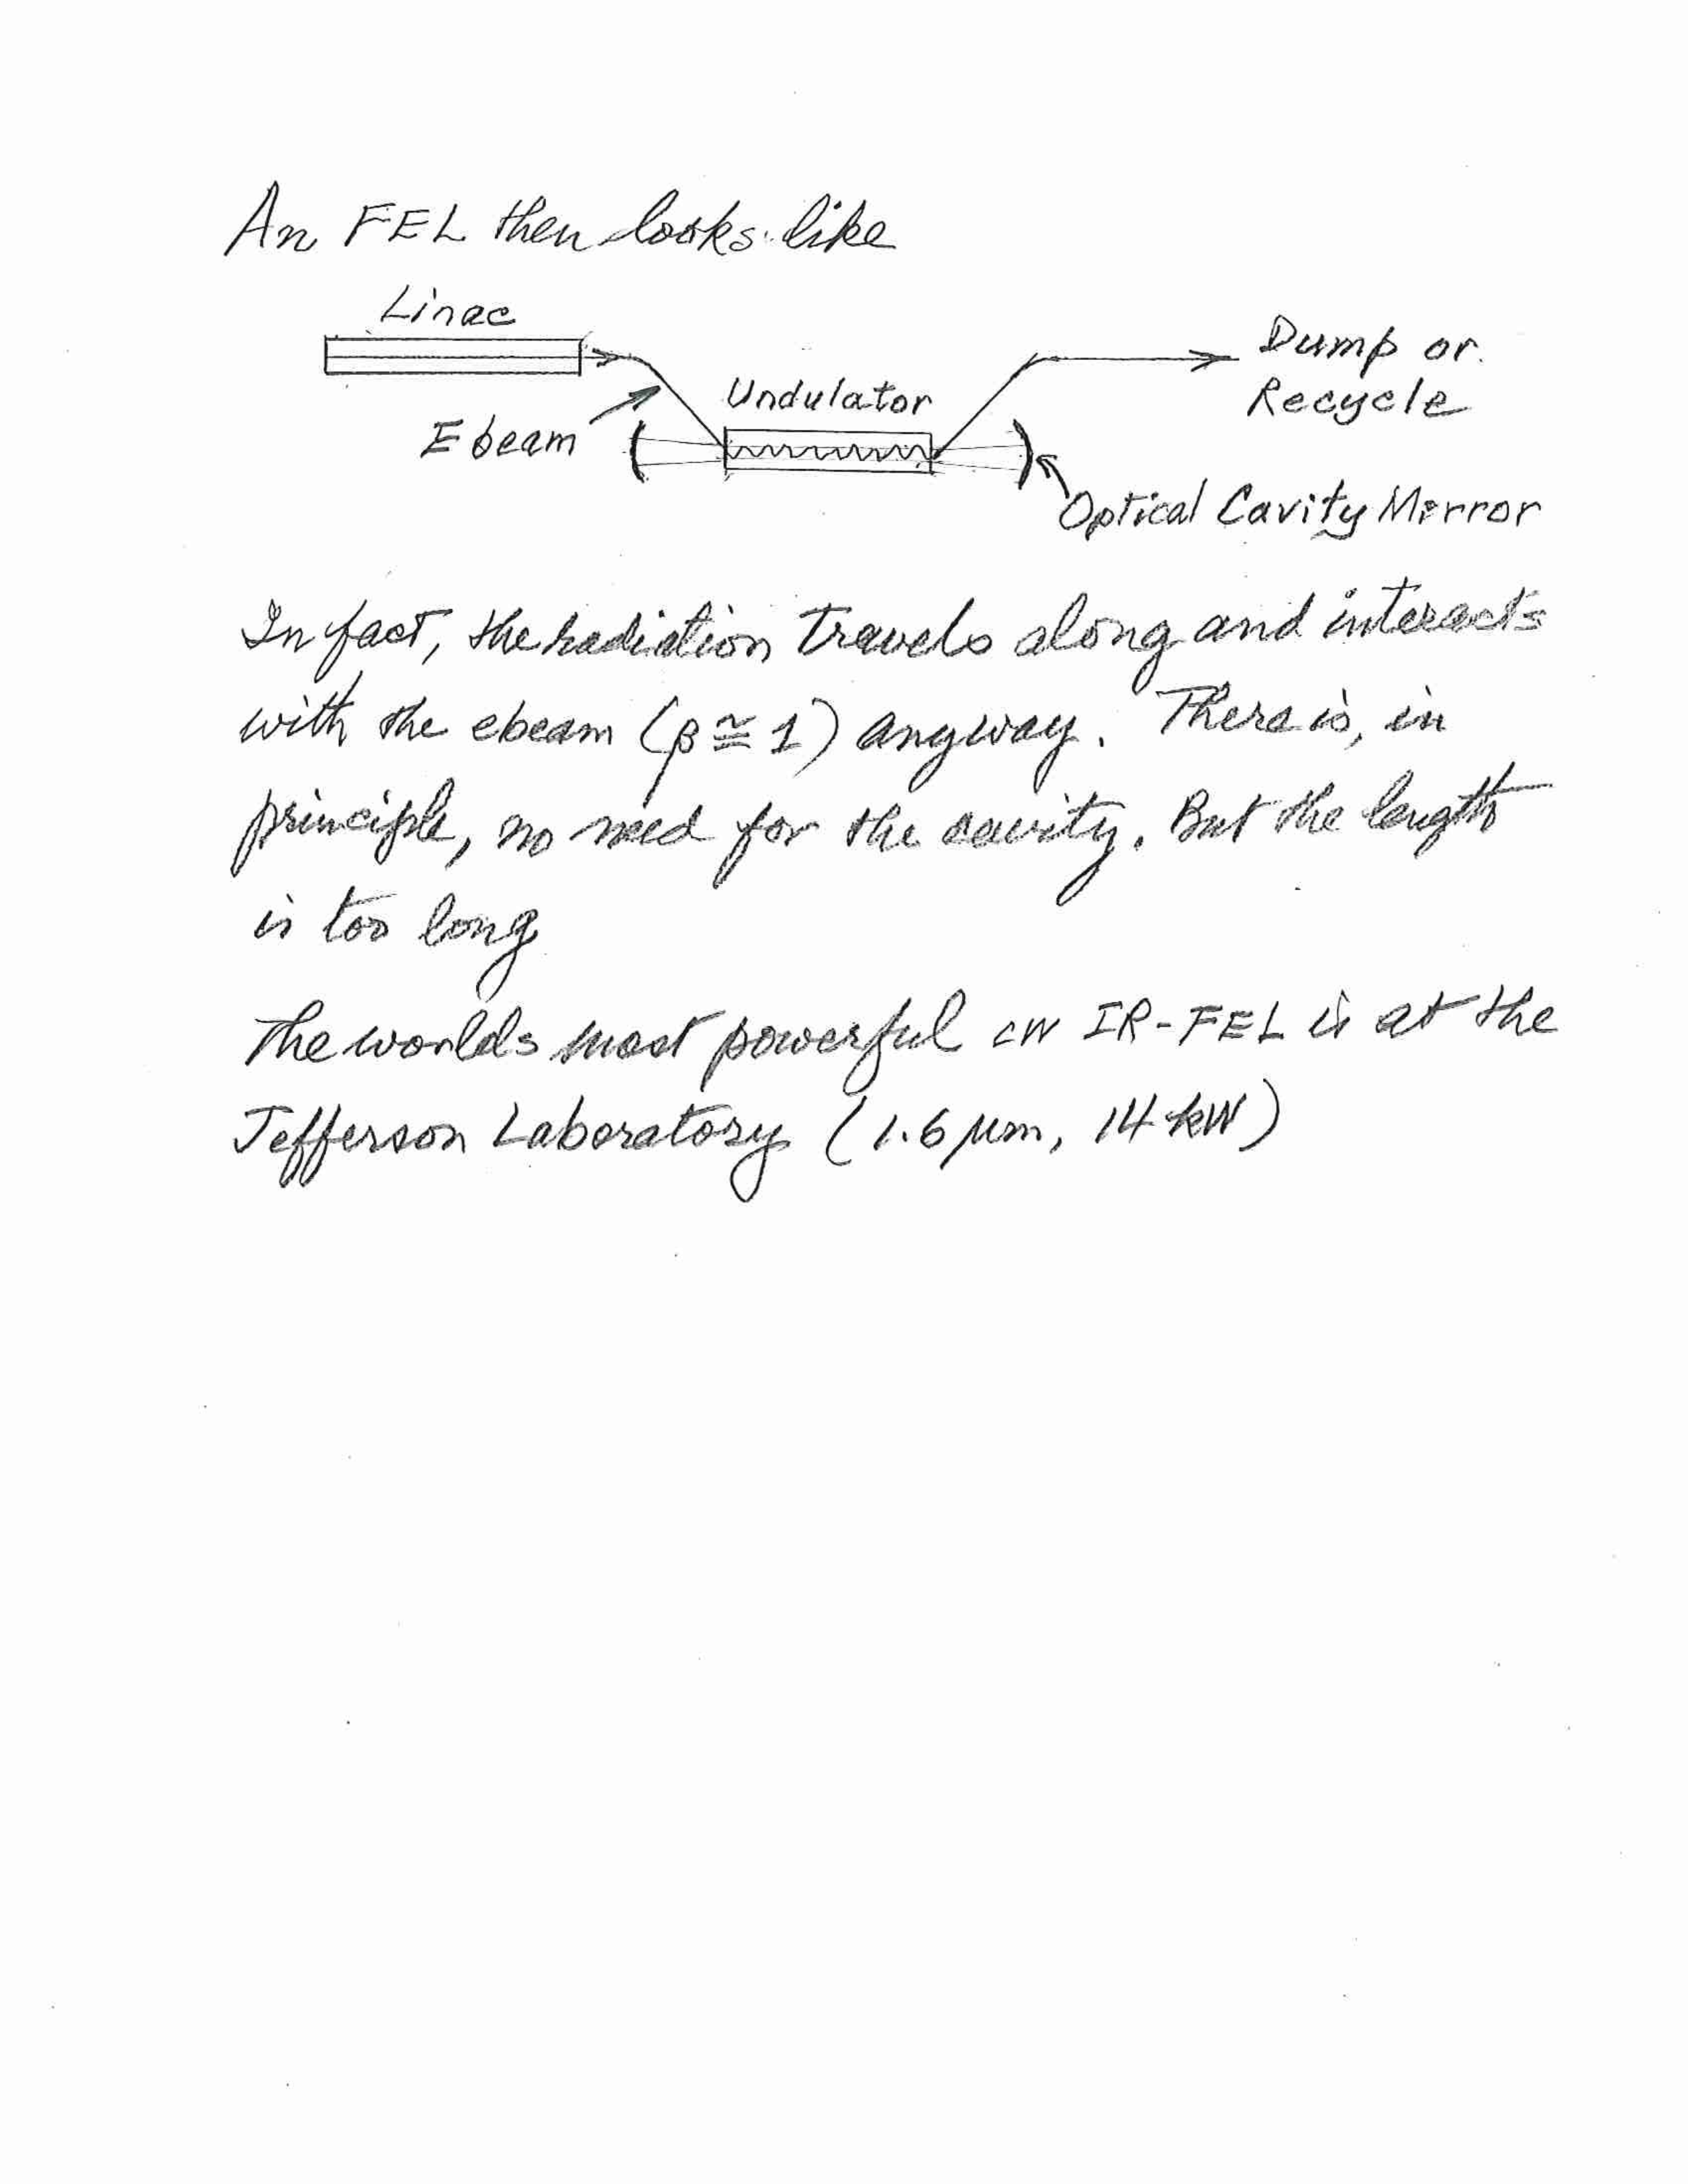 An FEL then looks like
Linac
Dump or
Recycle
Undulator
E beam
Optical Cavity Mirror
In fact, the radiation travels along and interacts
with the ebeam (β ≅ 1) anyway. There is, in
principle, no need for the cavity. But the length
is too long
The worlds most powerful CW IR-FEL is at the
Jefferson Laboratory (1.6 μm, 14 kW)